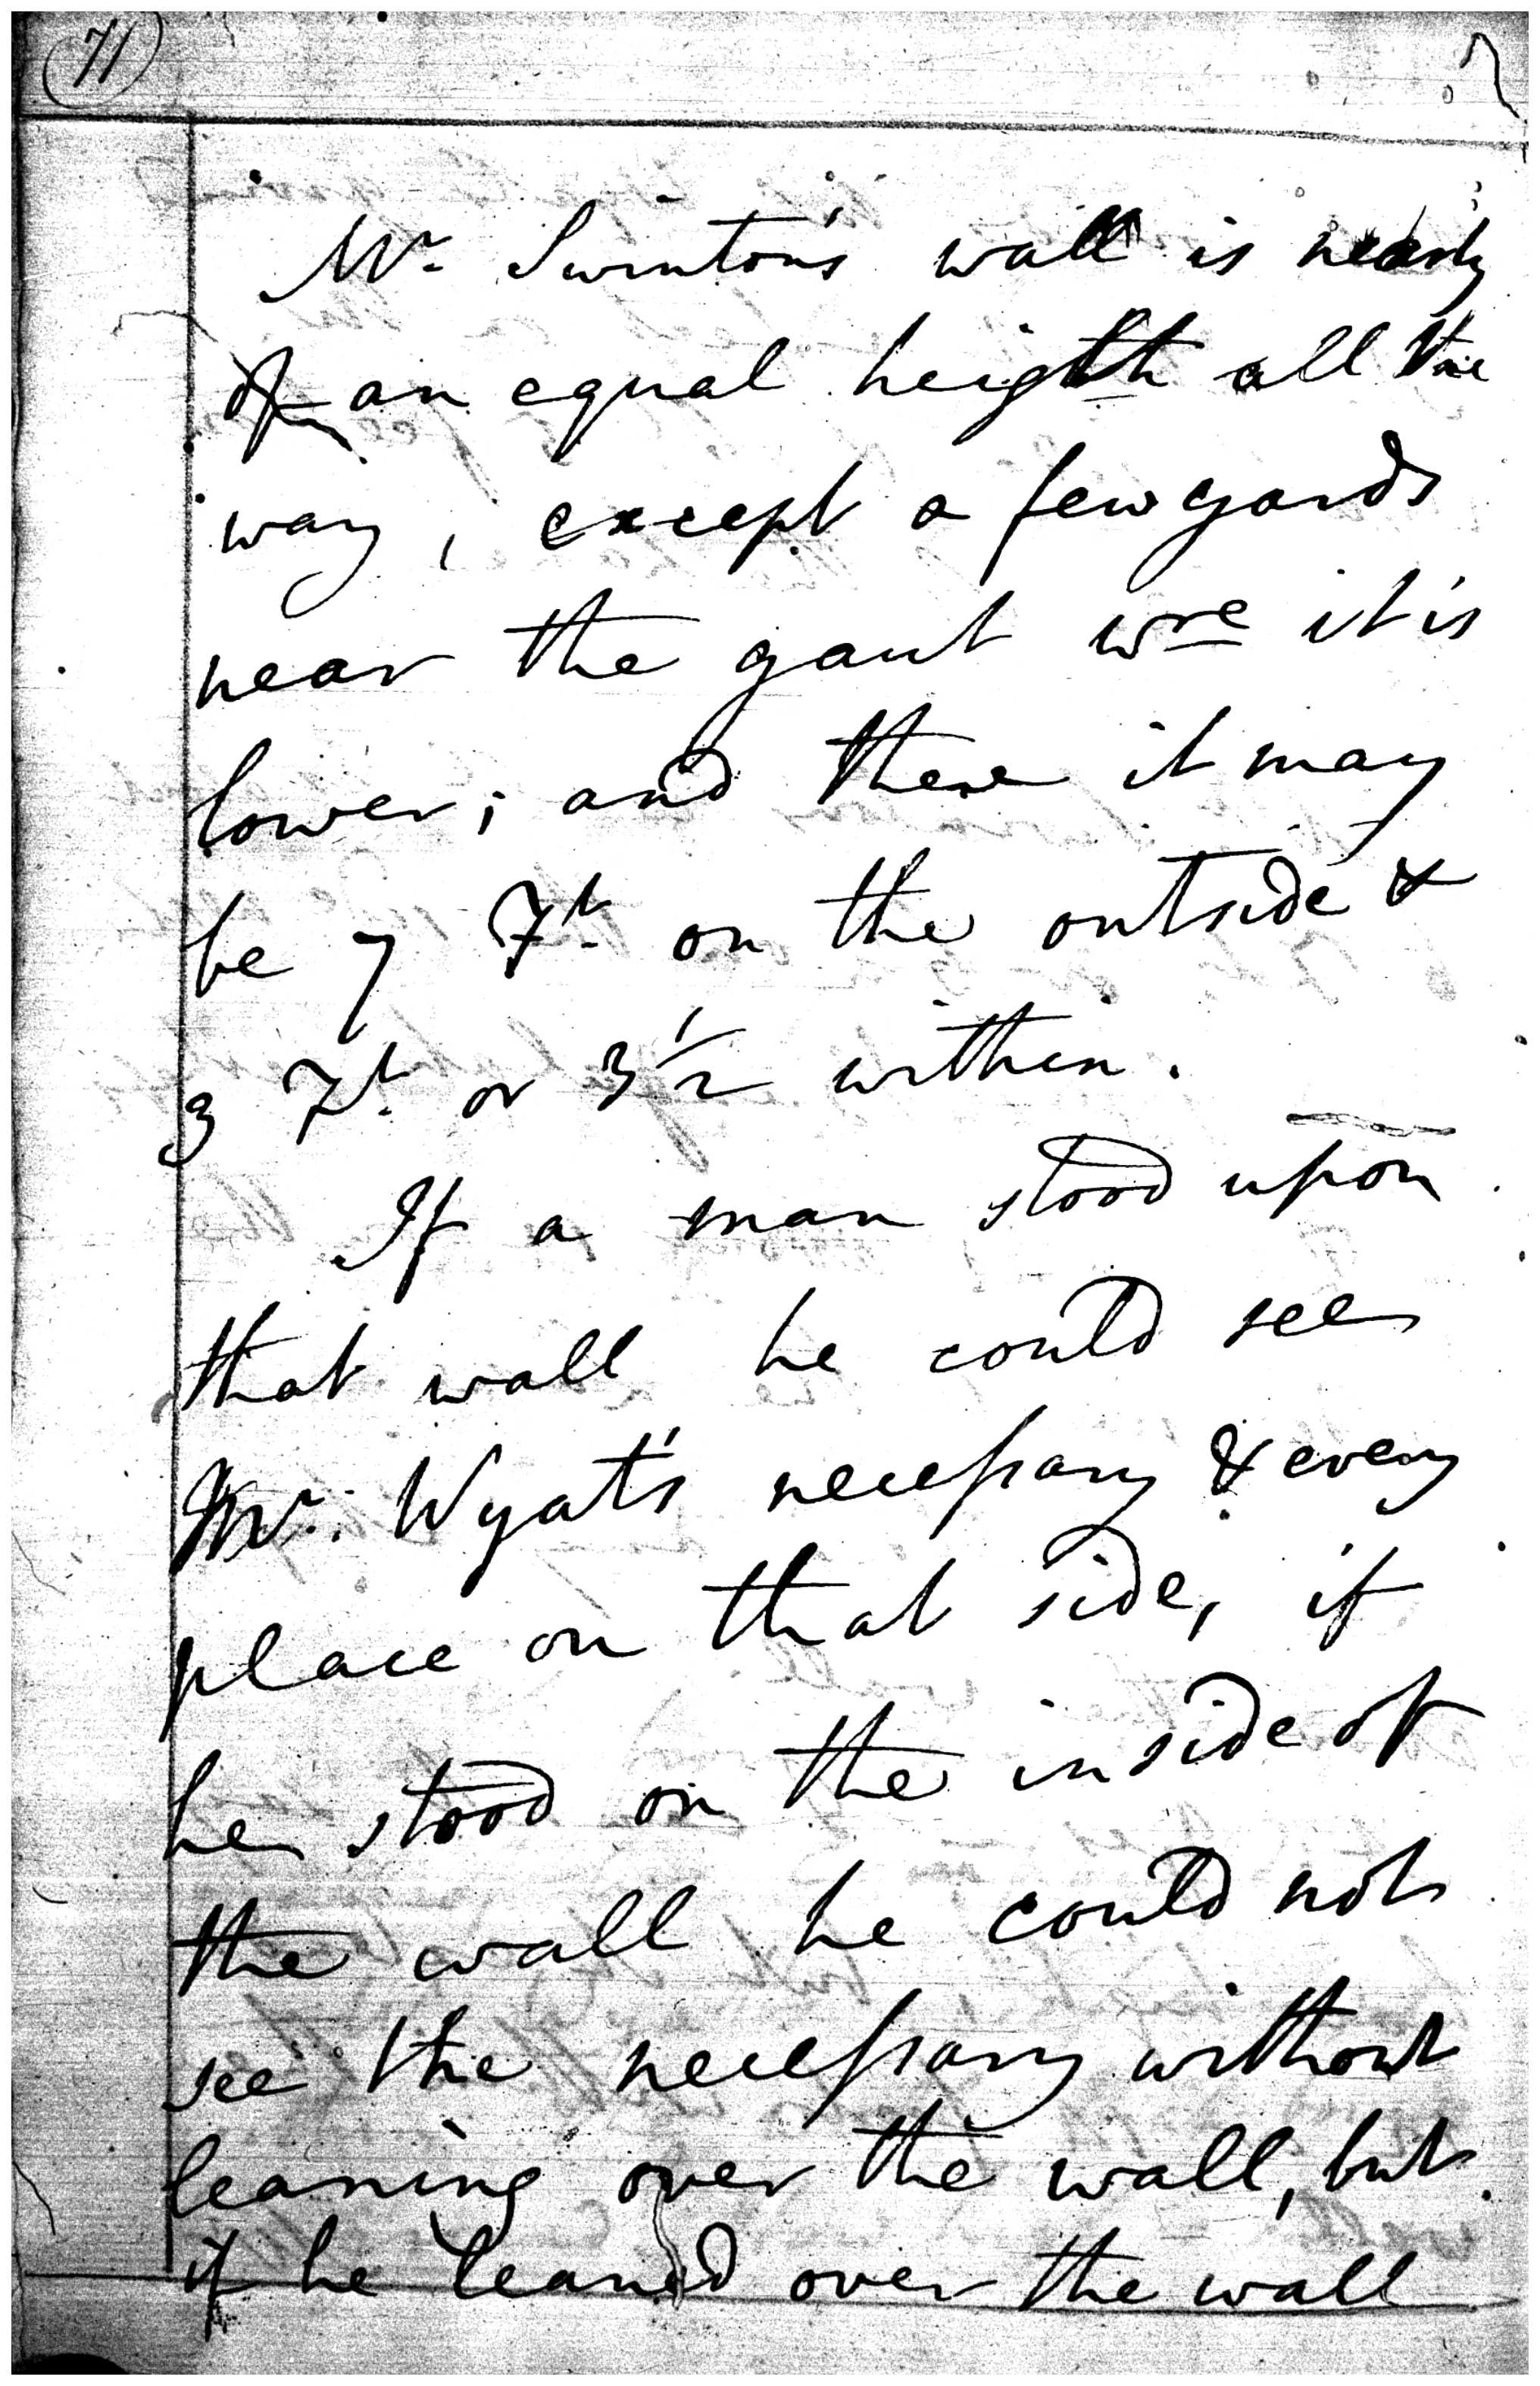 71
Mr. Swinton's wall is nearly
of an equal heigth all the
way, except a few yards
near the gaut wre it is
lower; and there it may
be 7 Ft. on the outside &
3 Ft. or 3 1/2 within.
If a man stood upon
that wall he could see
Mr. Wyat's necessary & every
place on that side, if
he stood on the inside of
the wall he could not
see the necessary without
leaning over the wall, but
if he leaned over the wall